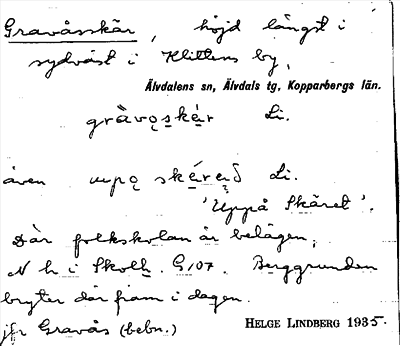 Gravåsskär, höjd längst i
sydväst i Klittens by,
Älvdalens sn, Älvdals tg, Kopparbergs län.
gråvo̜skér Li.
även uppo̜ Li.
'Uppå Skäret'.
Där folkskolan är belägen,
N h i Skolh. G107. Berggrunden
bryter där fram i dagen.
jfr Gravås (bebn.)
HELGE LINDBERG 1935.